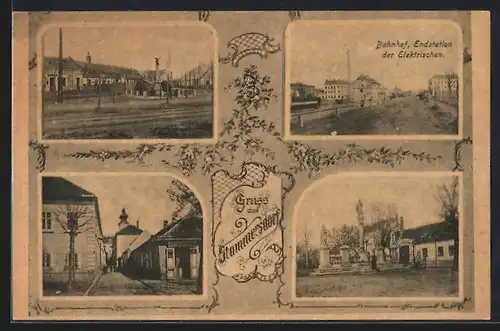 Bahnhof, Endstation
der Elektrischen.
Gruss
aus
Stammersdorf